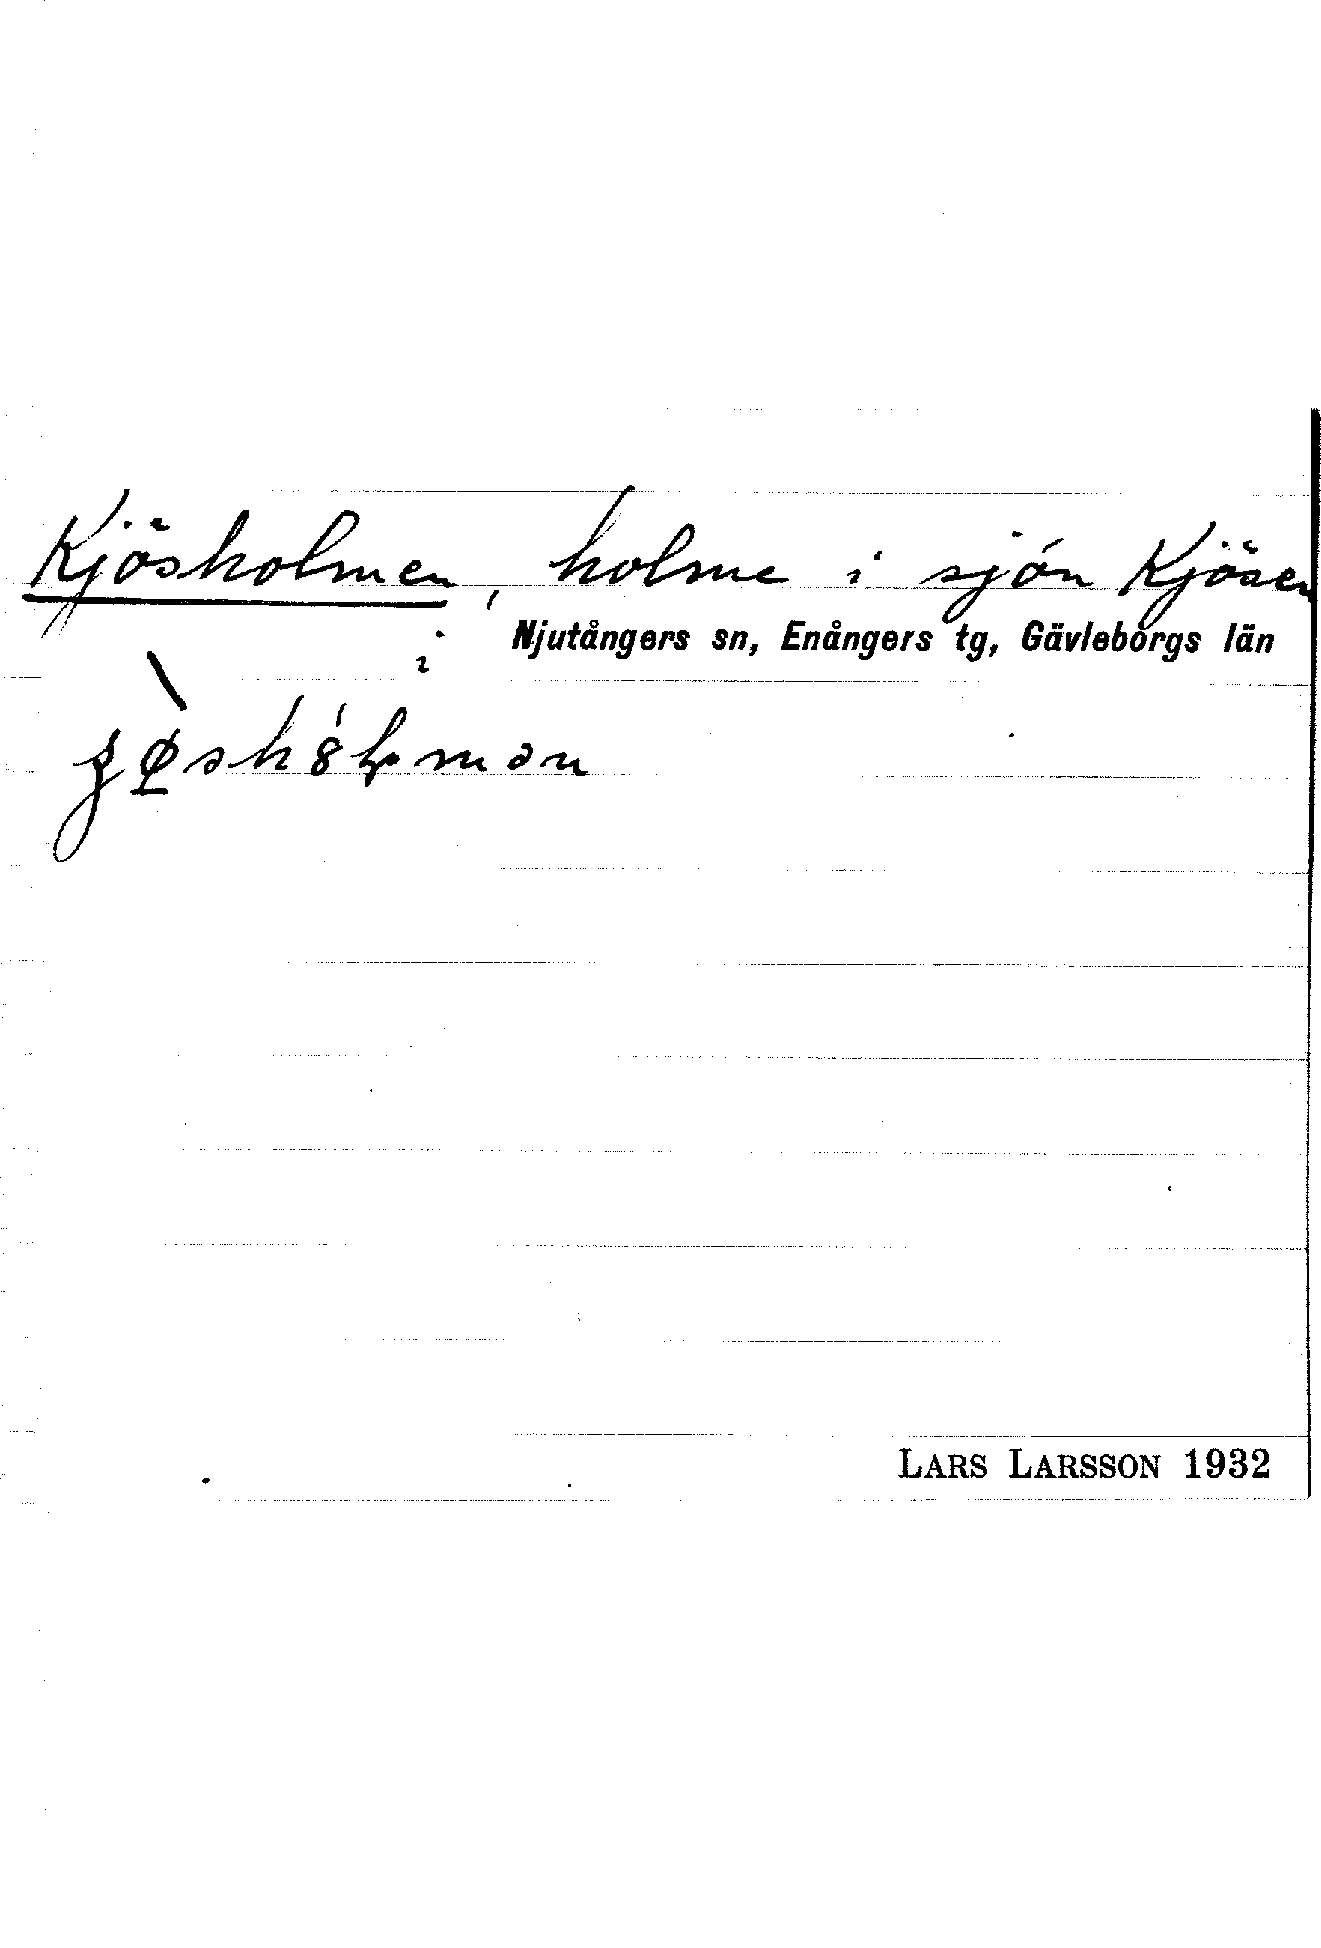 Kjösholmen, holme i sjön Kjösen
i Njutångers sn, Enångers tg, Gävleborgs län
LARS LARSSON 1932